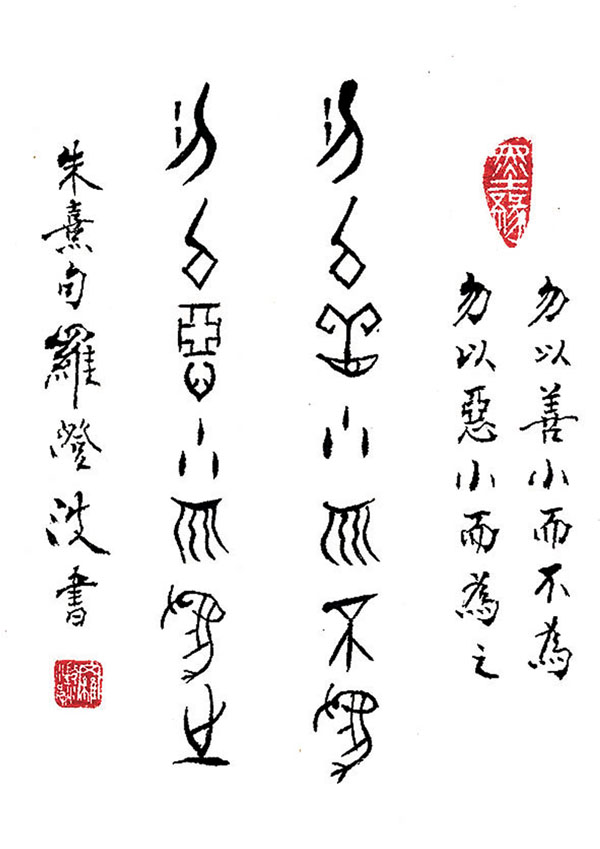 墨緣
勿以善小而不為
勿以惡小而為之
勿以善小而不為
勿以惡小而為之
朱熹句羅波書